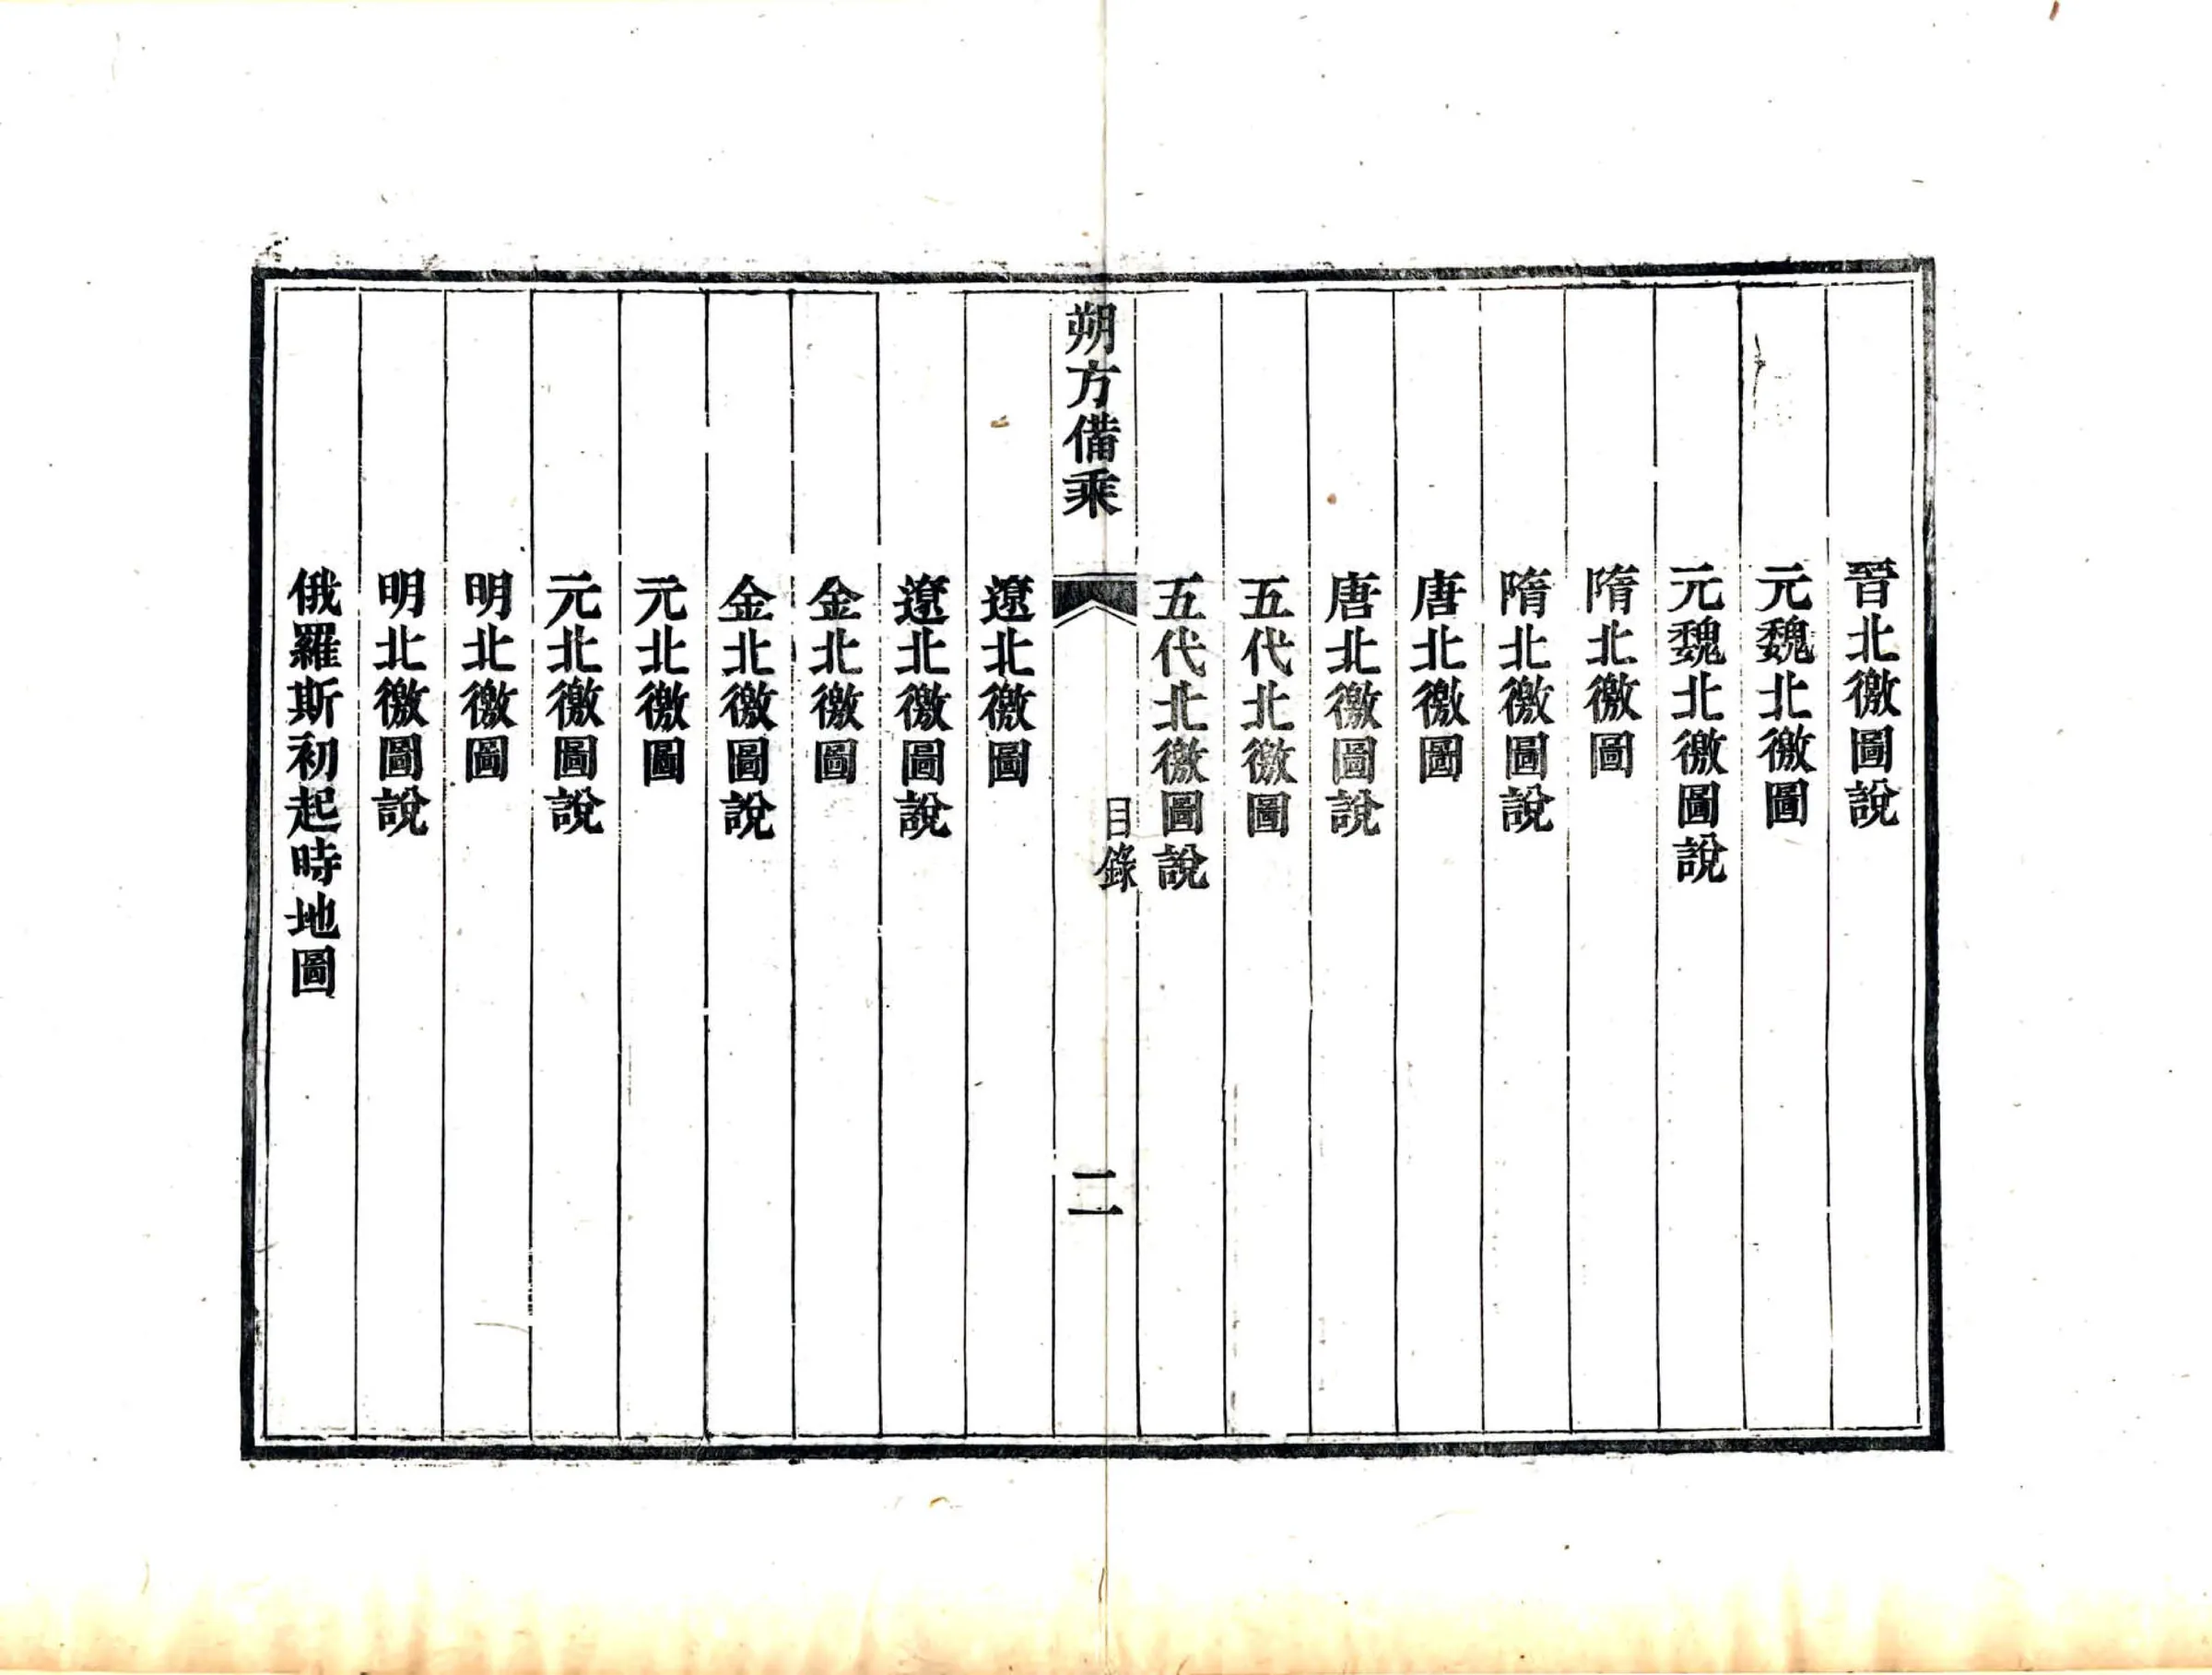 晉北徼圖說
元魏北徼圖
元魏北徼圖說
隋北徼圖
隋北徼圖說
唐北徼圖
唐北徼圖說
五代北徼圖
五代北徼圖說
朔方備乘
目錄
二
遼北徼圖
遼北徼圖說
金北徼圖
金北徼圖說
元北徼圖
元北徼圖說
明北徼圖
明北徼圖說
俄羅斯初起時地圖